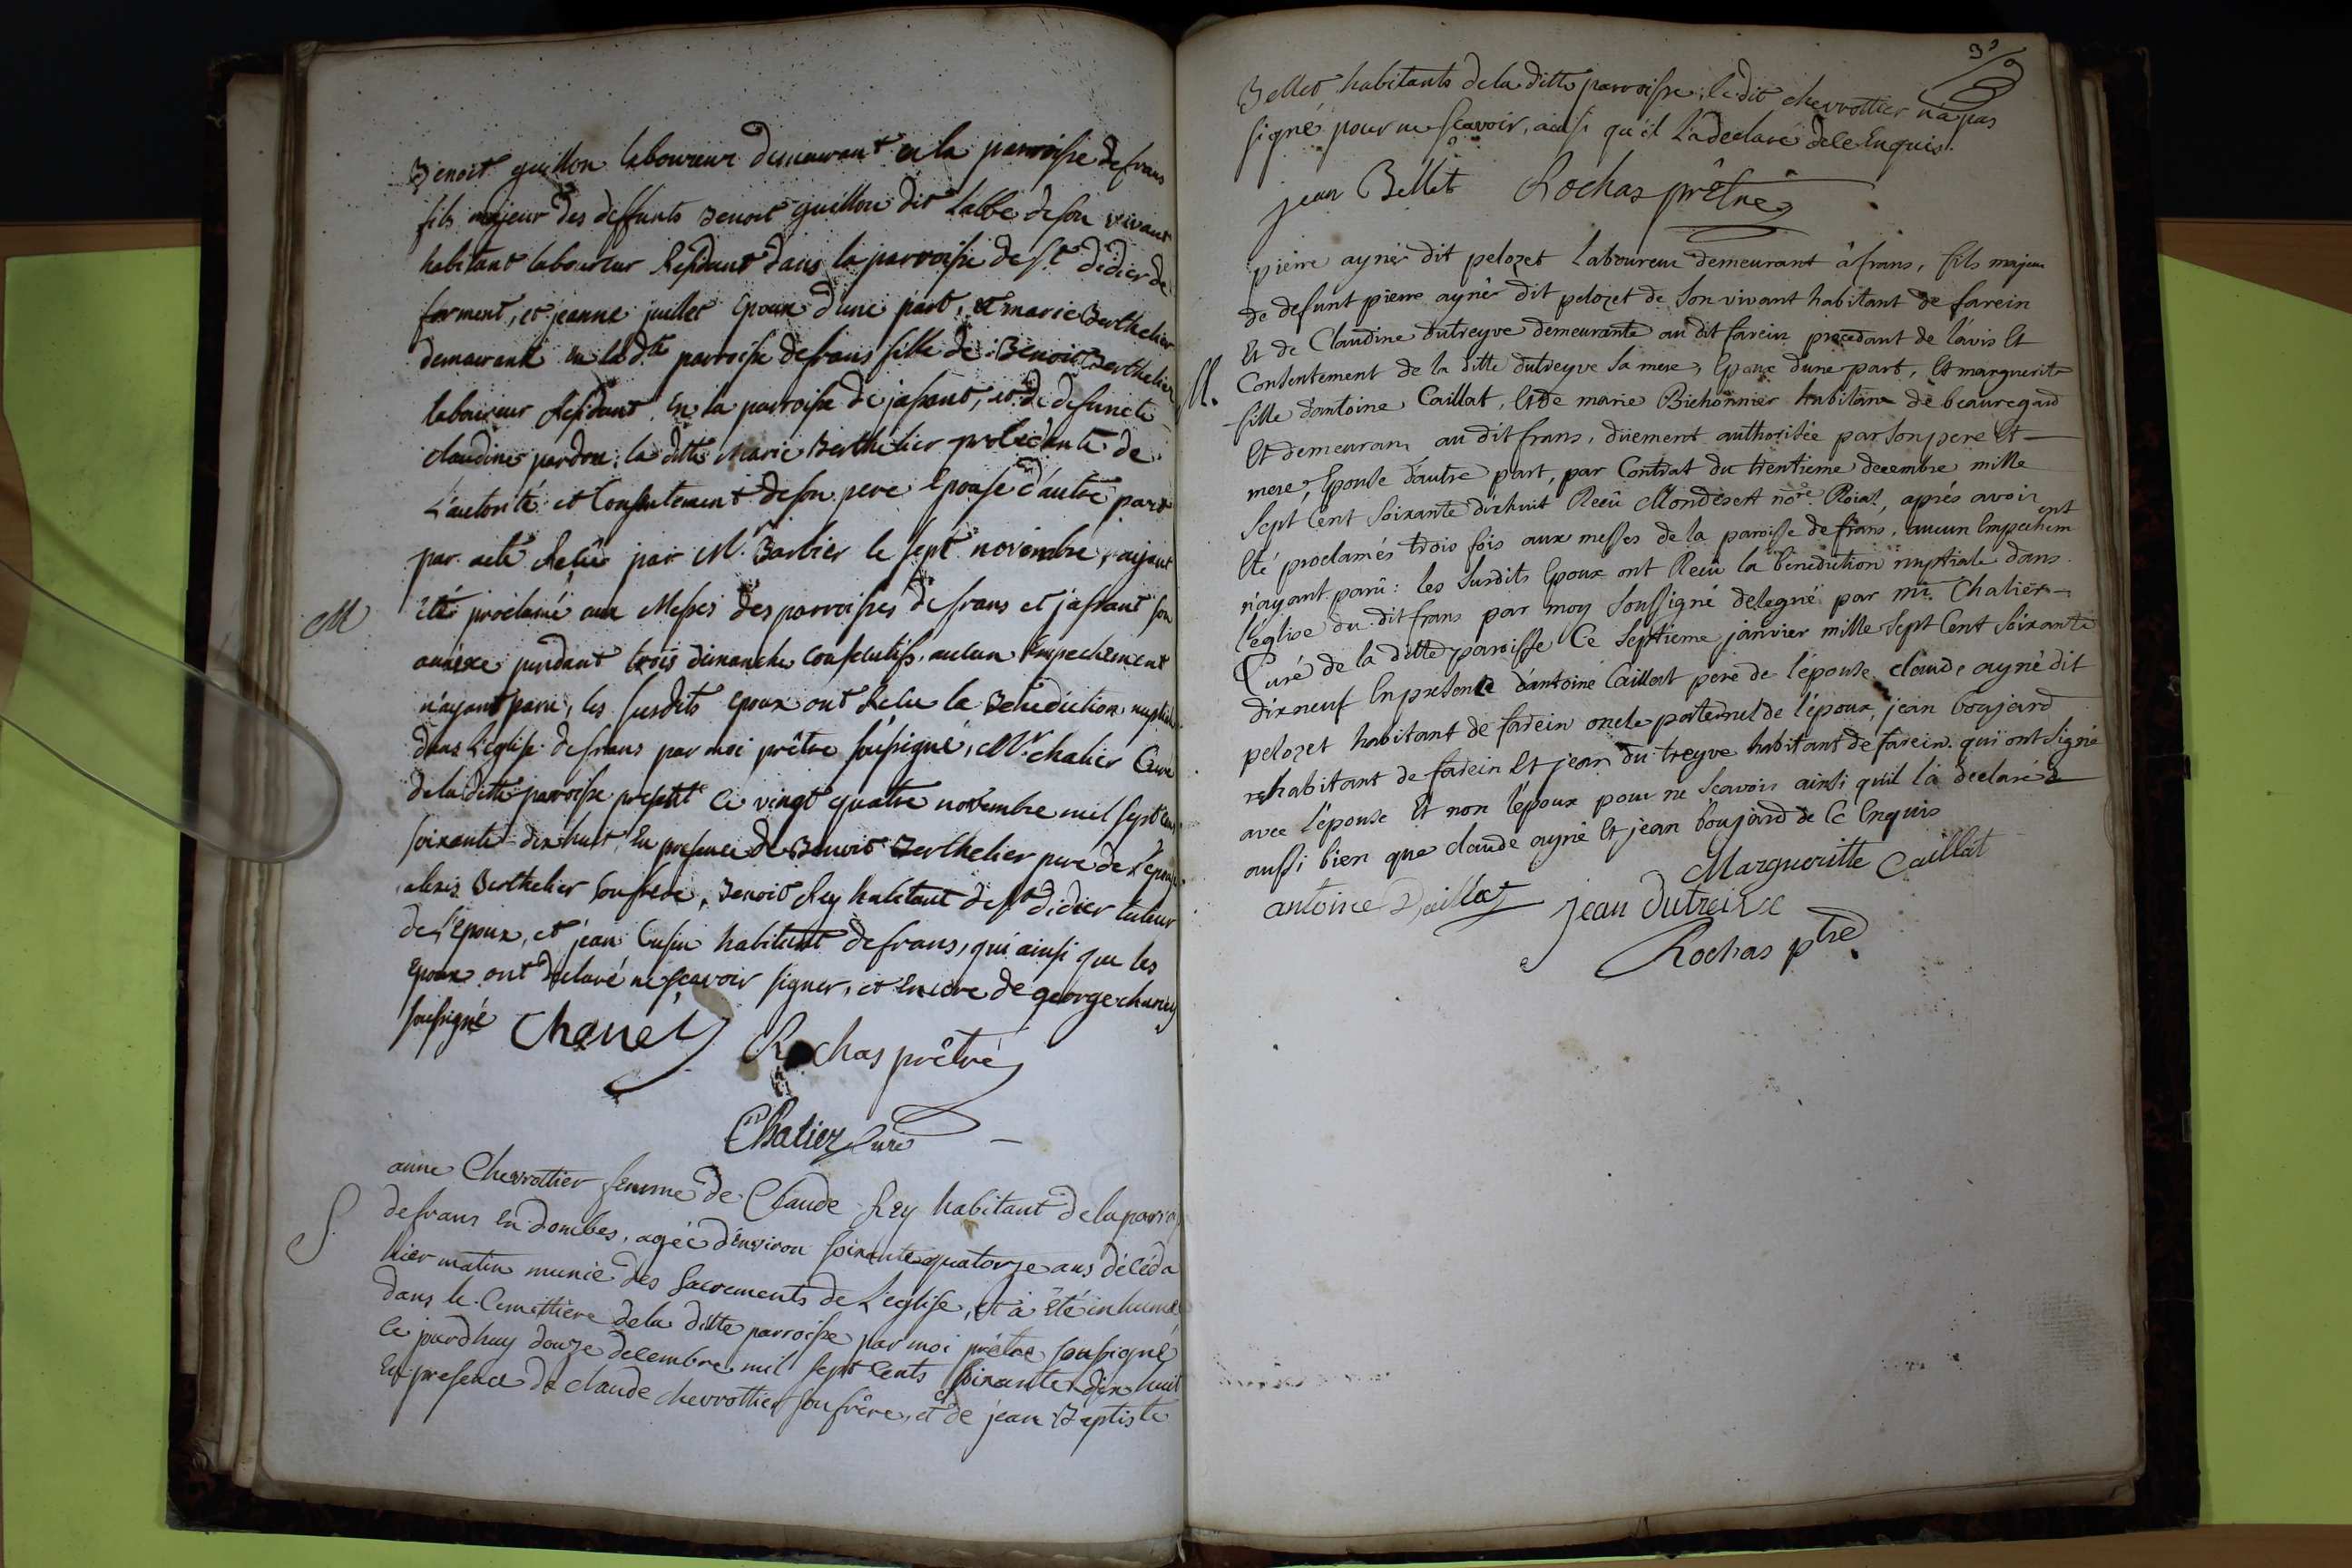 Benoit guillon laboureur demeurant en la parroisse de frans
fils majeur des deffunts Benoit guillon dit Labbe de son vivant
habitant laboureur Residant dans la parroisse de st didier de
forment, et jeanne juillet Epoux d'une part, et marie Berthelier
demeurante en la dte parroisse de frans fille de Benoit Berthelier
laboureur Residant En la parroisse de jassant, et de defuncte
claudine pardon; la ditte Marie Berthelier procedante de
L'autorité et Consentement de son pere Epouse d'autre part
par acte Recû par Mr Barbier le sept novembre, ayant
M
été proclamé aux Messes des parroisses de frans et jassant son
annexe pendant trois dimanche consecutifs, aucun Empechement
n'ayant paru, les susdits Epoux ont Recu la Benediction nuptiale
dans L'eglise de frans par moi prêtre soussigné, Mr chalier Curé
de la ditte parroisse present Ce vingt quatre novembre mil sept cent
soixante-dix huit En presence de Benoit Berthelier pere de L'epouse
alexis Berthelier son frere, Benoit Rey habitant de st didier tuteur
de l'Epoux, et jean Cusin habitant de frans, qui ainsi que les
Epoux ont declaré ne sçavoir signer, et Encore de george chanel
soussigné Chanel Rochas prêtre
Chalier Curé
anne Chevrottier femme de Claude Rey habitant de la parroi
S.
de frans en dombes, agée d'environ soixante quatorze ans décéda
hier matin munie des Sacrements de L'eglise, et a été inhumé
dans le Cimettiere de la ditte parroisse par moi prêtre soussigné
Ce jourdhuy douze decembre mil sept cents soixante dix huit
En presence de claude chevrottier son frère, et de jean Baptiste
3
Bellet habitants de la ditte parroisse; le dit chevrottier n'a pas
signé pour ne sçavoir, ainsi qu'il L'a declaré de ce Enquis.
jean Bellet Rochas prêtre
pierre ayné dit pelozet Laboureur demeurant à frans, fils majeur
de defunt pierre ayné dit pelozet de son vivant habitant de farein
Et de Claudine dutreyve demeurante au dit farein procedant de l'avis Et
M.
Consentement de la ditte dutreyve sa mere, Epoux d'une part, Et marguerite
fille d'antoine Caillat, Et de marie Bichonnier habitans de beauregard
Et demeurant au dit frans, düement authorisée par son pere Et
mere, Epouse d'autre part, par Contrat du trentieme decembre mille
sept Cent soixante dixhuit Recû Mondesert nore. Roial, aprés avoir
Eté proclamés trois fois aux messes de la paroisse de frans, aucun Empechement
n'ayant parû: les susdits Epoux ont Recû la benediction nuptiale dans
l'église du dit frans par moy soussigné delegué par mr. Chalier
Curé de la ditte paroisse Ce septieme janvier mille sept Cent soixante
dixneuf En presence d'antoine Caillat pere de l'épouse claude ayné dit
pelozet habitant de farein oncle paternel de l'époux, jean boujard
habitant de farein Et jean du treyve habitant de farein qui ont signé
avec l'épouse Et non l'époux pour ne scavoir ainsi qu'il l'a declaré
aussi bien que claude ayné Et jean boujard de Ce Enquis
Margueritte Caillat
antoine Caillat jean dutreive
Rochas ptre